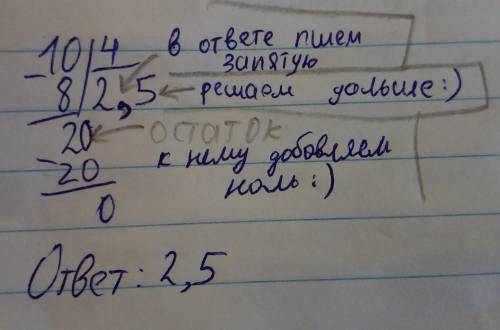 10 4 в ответе пшем
запятую
8 2,5 решаем дальше:)
20 остаток
20 к нему добовляем
ноль:)
0
Ответ: 2,5